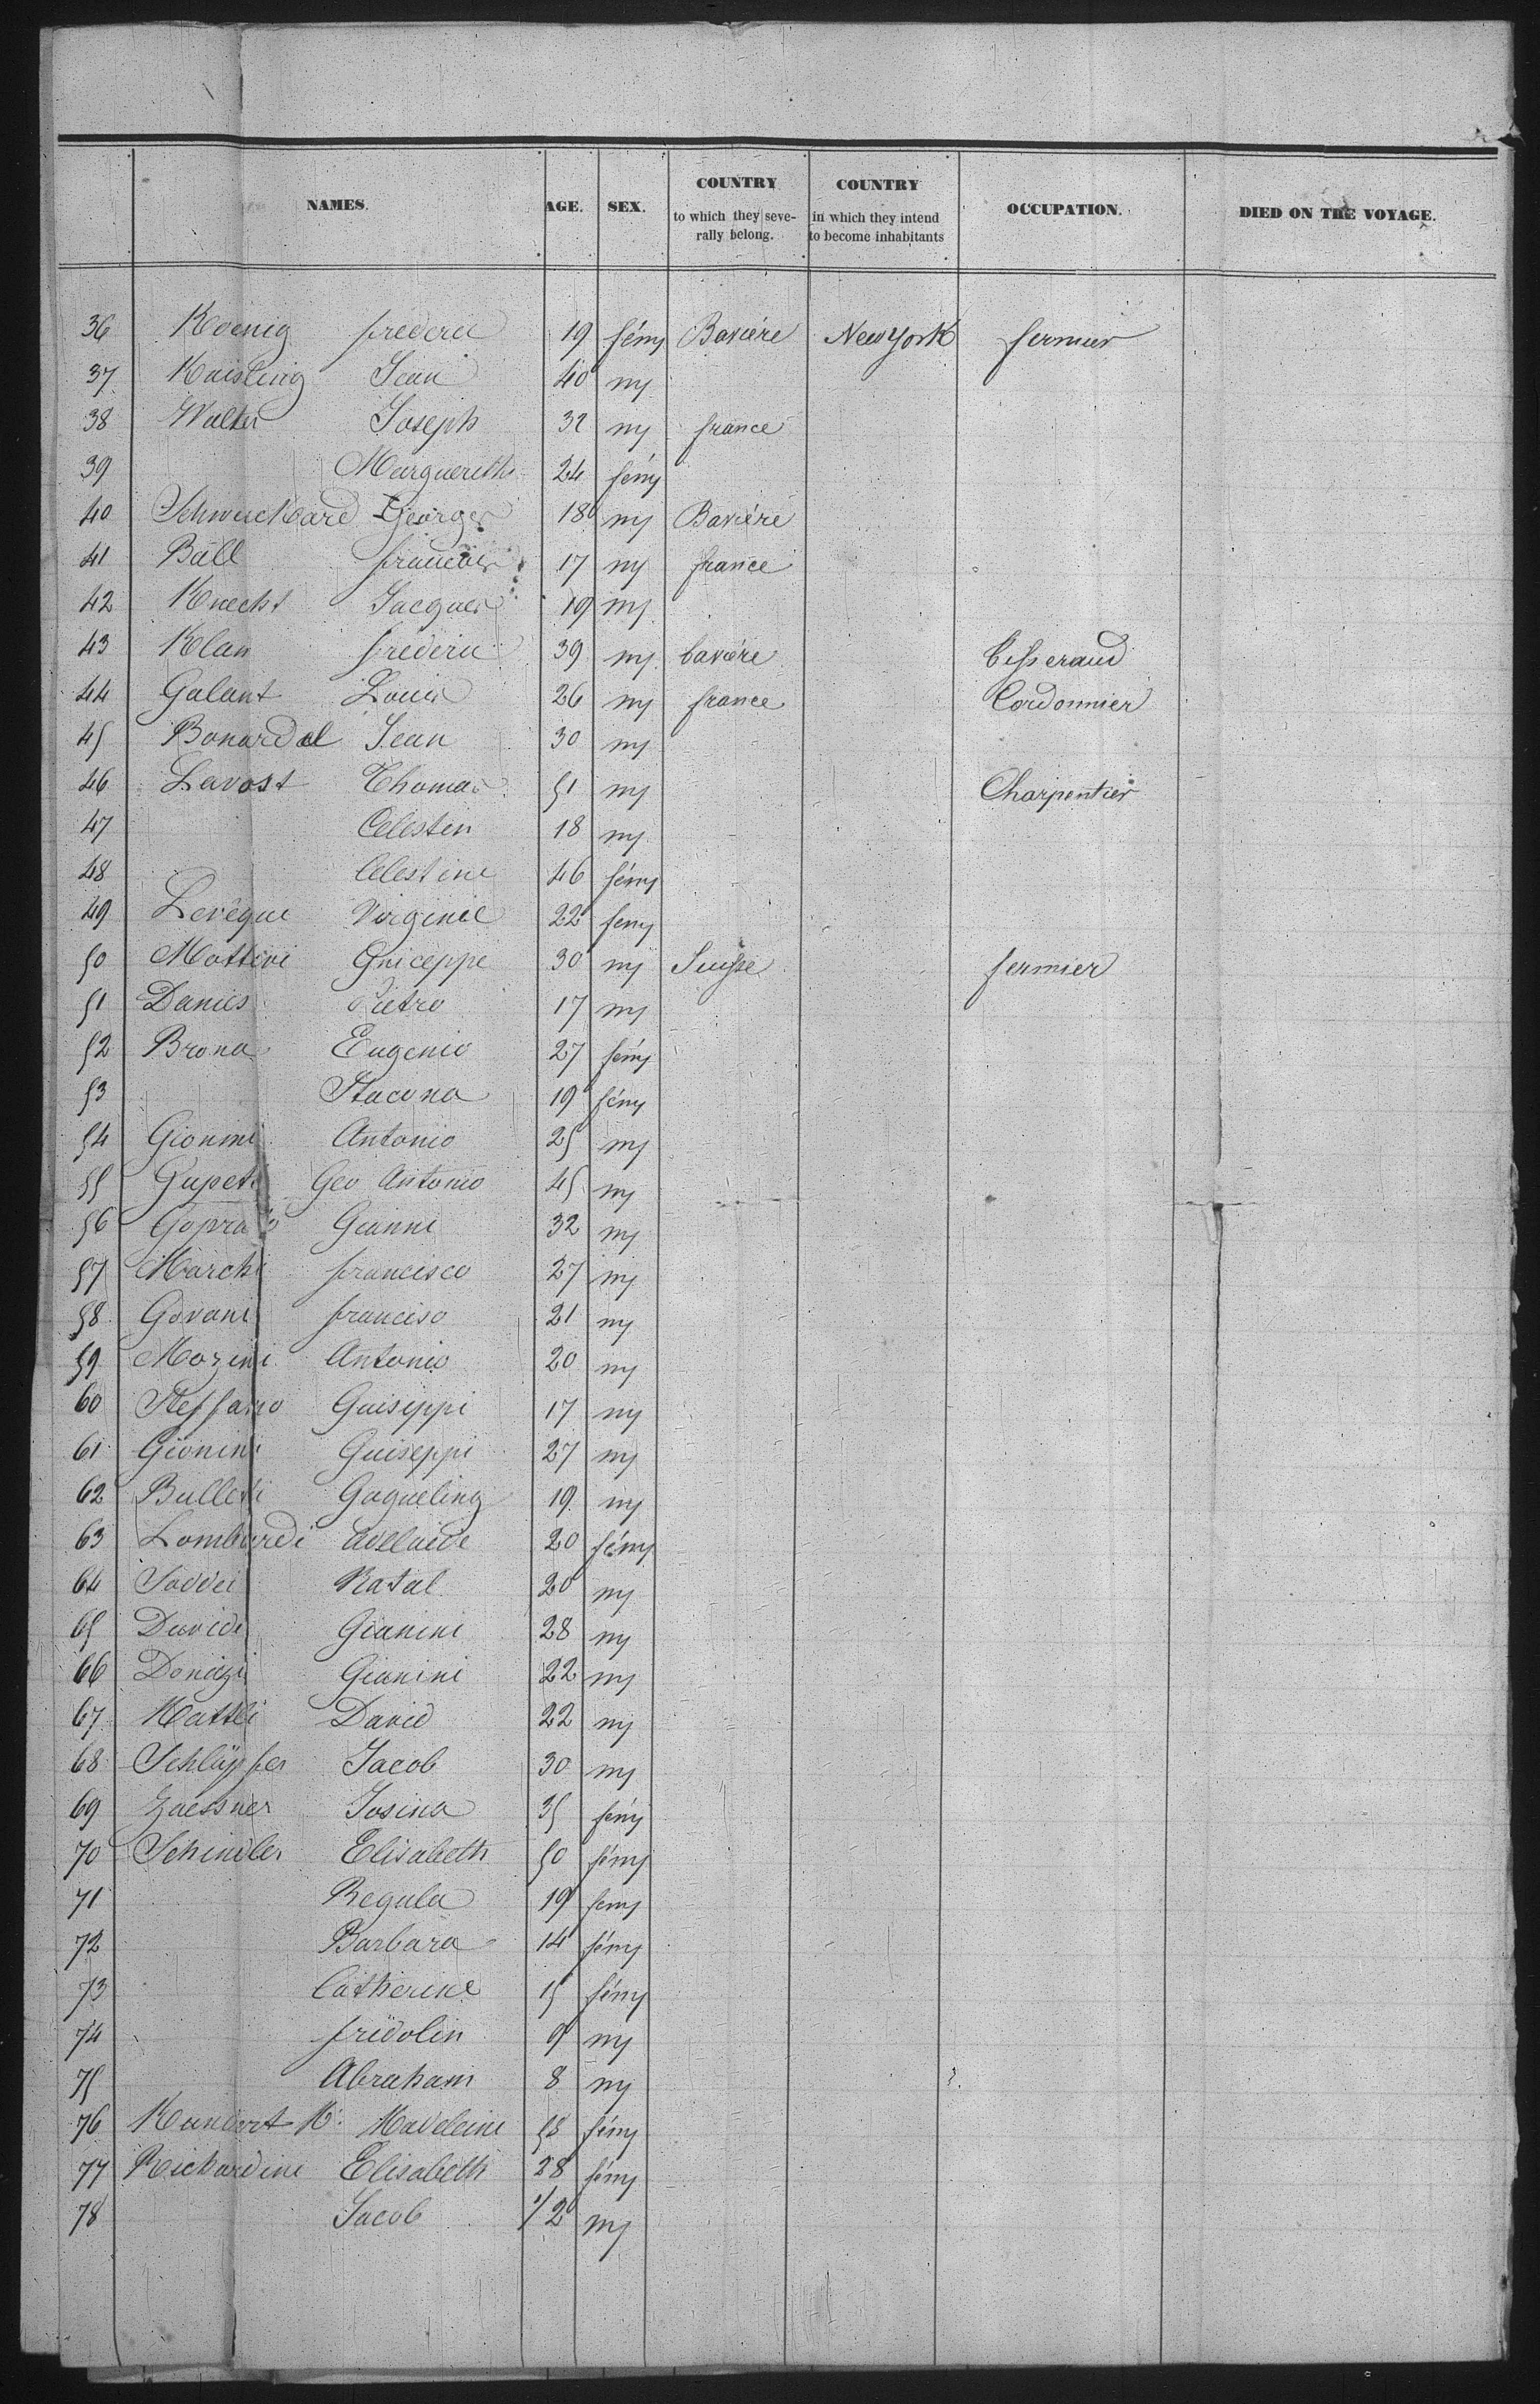 NAMES. AGE. SEX. COUNTRY to which they severally belong. COUNTRY in which they intend to become inhabitants OCCUPATION. DIED ON THE VOYAGE.
36 Koenig frederic 19 fém Baviére New York fermier
37 Kaisling Jean 40 m
38 Walter Joseph 32 m france
39 Marguerithe 24 fém
40 Schwuckard Georges 18 m Baviére
41 Ball francois 17 m france
42 Knecht Jacques 19 m
43 Klan frederic 39 m baviére tisserand
44 Galant Louis 26 m france Cordonnier
45 Bonardel Jean 30 m
46 Lavost Thomas 51 m Charpentier
47 Celestin 18 m
48 Celestine 46 fém
49 Levêque Virginie 22 fem
50 Mattini Guiceppe 30 m Suisse fermier
51 Danies Pietro 17 m
52 Brona Eugenio 27 fém
53 Stacona 19 fém
54 Gionini Antonio 25 m
55 Gupeti Geo Antonio 45 m
56 Gianni 32 m
57 Marchi francisco 27 m
58 Govani francisco 21 m
59 Mozini Antonio 20 m
60 Steffano Guiseppi 17 m
61 Gionini Guiseppi 27 m
62 Bulleti Gaqueling 19 m
63 Lombardi Adelaide 20 fém
64 Soddei Natal 20 m
65 Davide Gianini 28 m
66 Donazi Gianini 22 m
67 Mattli David 22 m
68 Schläpfer Jacob 30 m
69 Zaessner Rosina 35 fém
70 Schindler Elisabeth 50 fém
71 Regula 19 fem
72 Barbara 14 fém
73 Catherine 15 fém
74 fridolin 9 m
75 Abraham 8 m
76 Kundert M. Madeleine 58 fém
77 Rickardine Elisabeth 28 fém
78 Jacob 1/2 m